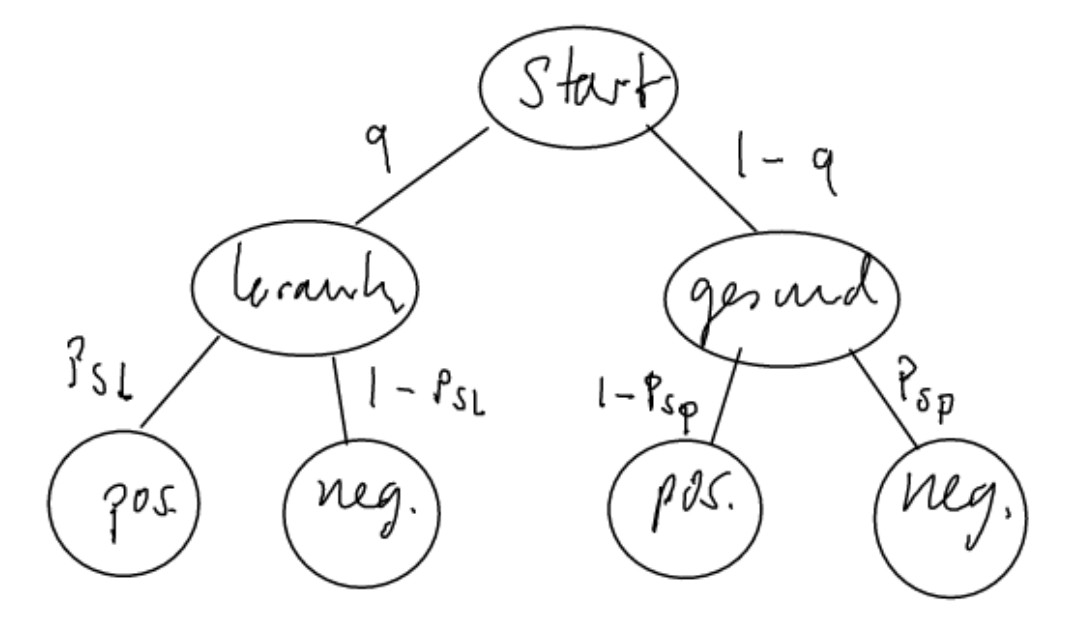 Start
q
1 - q
krank
gesund
PSL
1 - PSL
1 - PSP
PSP
pos.
neg.
pos.
neg.